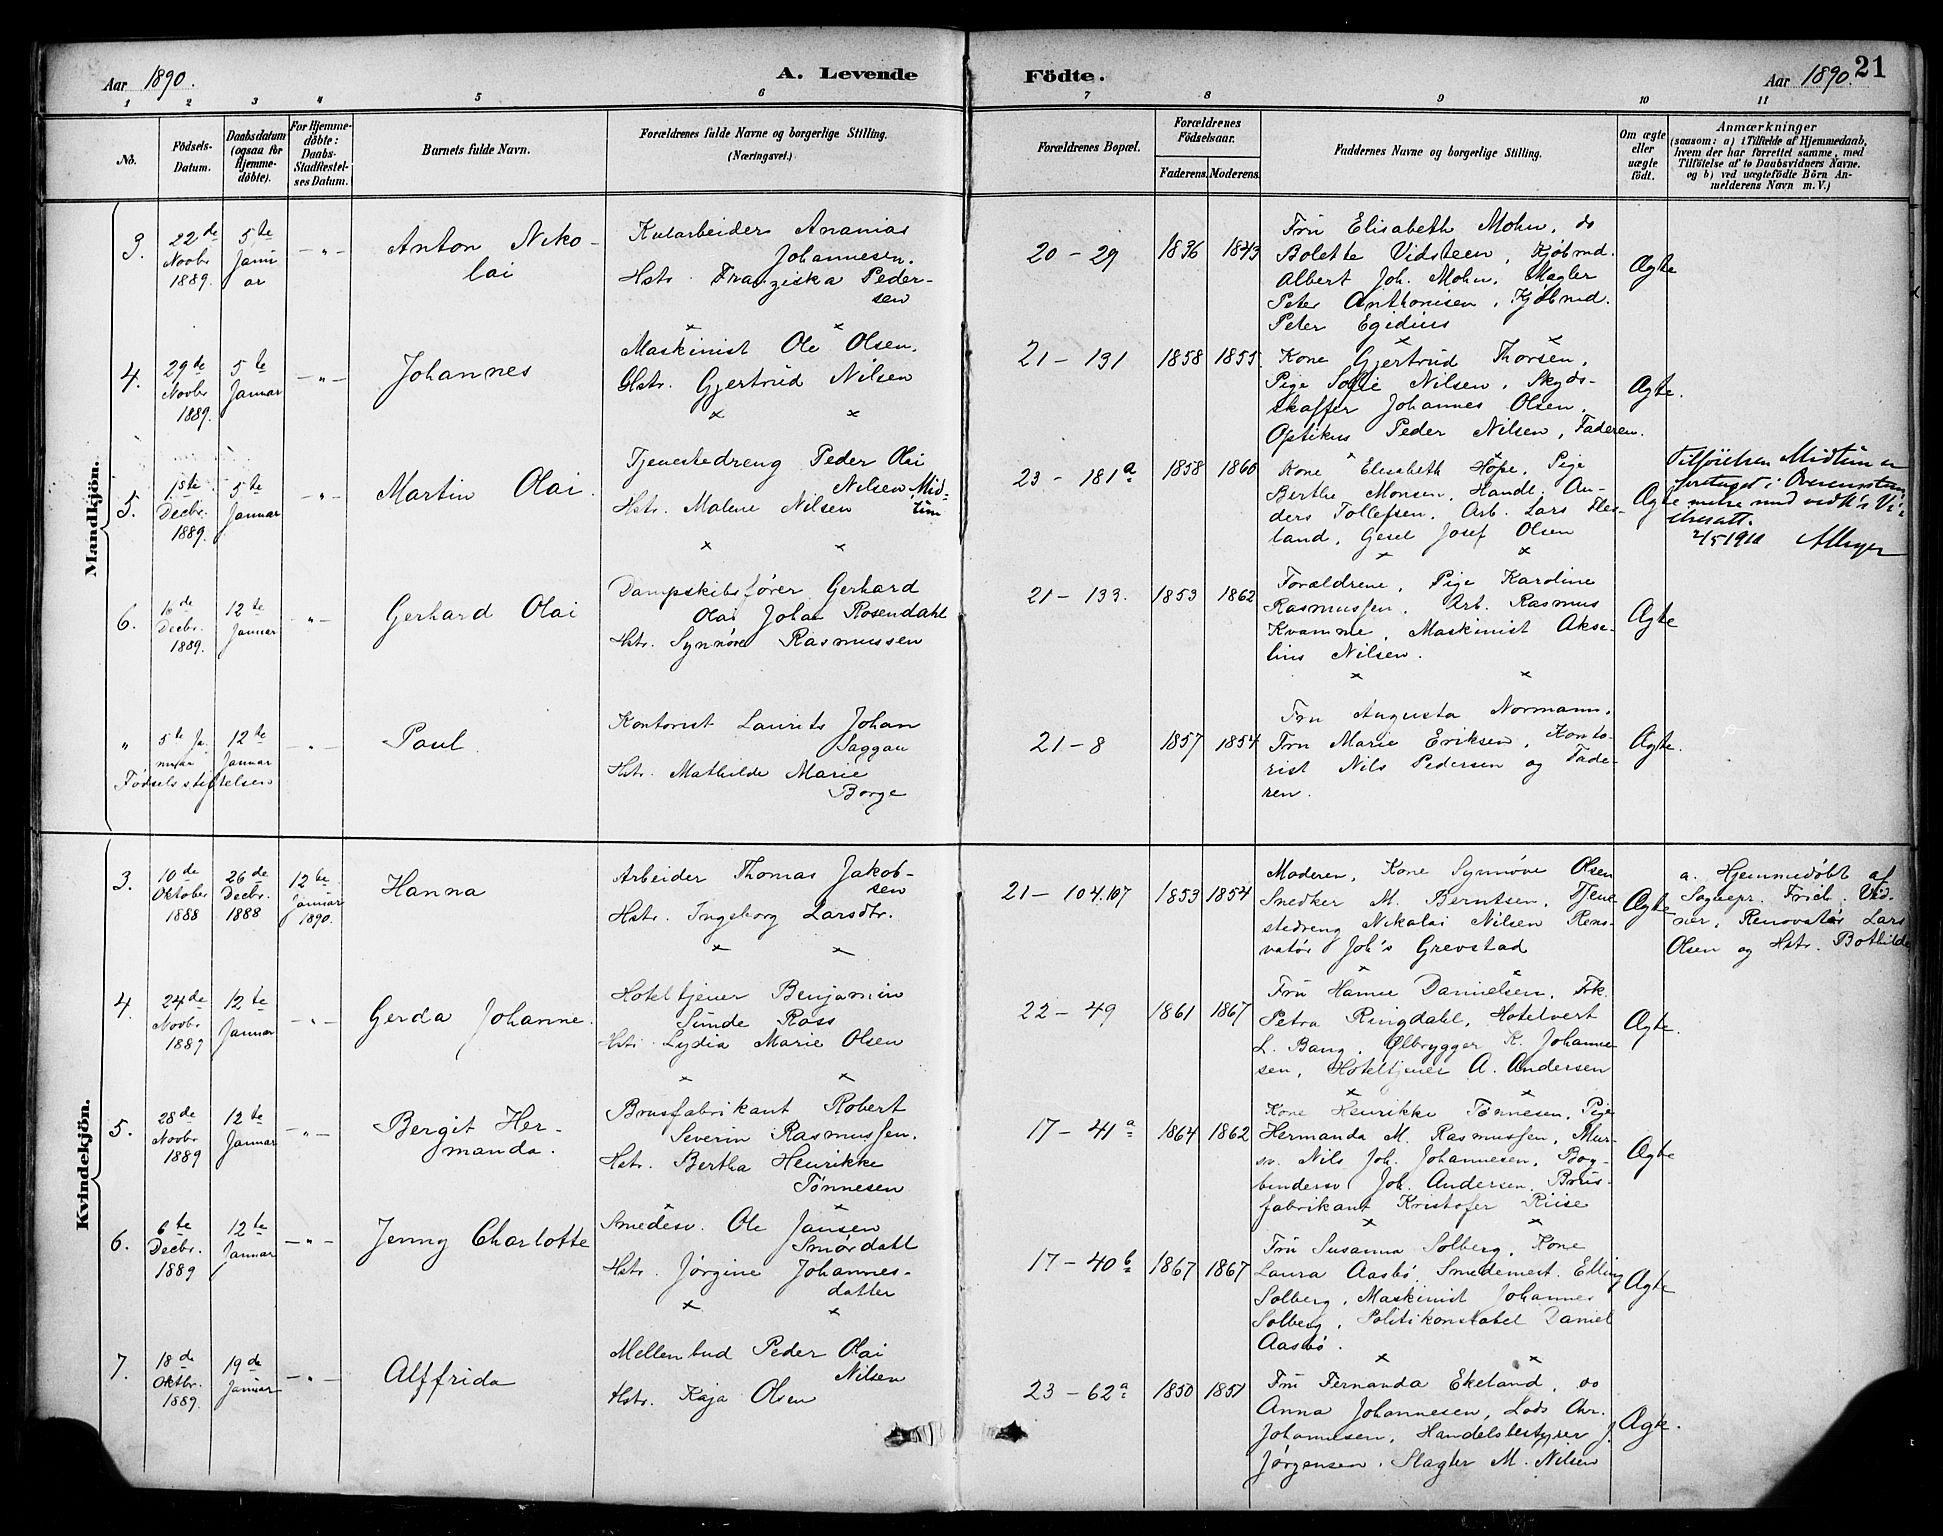 Aar 1890. A. Levende Födte. Aar 1890. 21
1 2 3 4 5 6 7 8 9 10 11
No.
Födsels-
Datum.
Daabsdatum
(ogsaa for
Hjemme-
döbte).
For Hjemme-
döbte:
Daabs-
Stadfæstel-
ses Datum.
Barnets fulde Navn.
Forældrenes fulde Navne og borgerlige Stilling.
(Næringsvei.)
Forældrenes Bopæl.
Forældrenes
Födselsaar.
Faderens. Moderens.
Faddernes Navne og borgerlige Stilling.
Om ægte
eller
uægte
födt.
Anmærkninger
(saasom: a) i Tilfælde af Hjemmedaab,
hvem der har forrettet samme, med
Tilföielse af to Daabsvidners Navne.
og b) ved uægtefödte Börn An-
melderens Navn m. V.)
Mandkjön.
3.
22de
Novbr
1889.
5te
Janu
ar
— " —
Anton Niko-
lai
Kularbeider Ananias
Johannesen.
Hstr. Franziska Peder-
sen
20 – 29
1836 1843
Fru Elisabeth Mohn, do
Bolette Vidsteen, Kjøbmd.
Albert Joh. Mohn, Mægler
Peter Anthonisen, Kjøbmd.
Peter Egidius
Ægte
4.
29de
Novbr
1889.
5te
Januar
— " —
Johannes
Maskinist Ole Olsen.
Hstr. Gjertrud Nilsen
21 – 131
1858 1855.
Kone Gjertrud Thorsen,
Pige Sofie Nilsen, Skyds-
skaffer Johannes Olsen,
Optikus Peder Nilsen, Faderen.
Ægte.
5.
1ste
Decbr.
1889.
5te
Januar
— " —
Martin Olai.
Tjenestedreng Peder Olai
Nilsen Mid-
tun
Hstr. Malene Nilsen
23 – 181a
1858 1860
Kone Elisabeth Hope, Pige
Berthe Monsen, Handl. An-
ders Tollefsen, Arb. Lars Fles-
land, Gesel Josef Olsen
Ægte
Tilföielsen Midtun er
foretaget i Overensstem-
melse med
2/5 1910
6.
Decbr.
1889.
12te
Januar
— " —
Gerhard Olai
Dampskibsfører Gerhard
Olai Johan Rosendahl
Hstr. Synnöve Rasmussen
21 – 133.
1853 1862
Forældrene, Pige Karoline
Rasmussen, Arb. Rasmus
Kvamme, Maskinist Akse-
lius Nilsen.
Ægte
"
5te Ja-
nuar
12te
Januar
— " —
Födselsstiftelsen
Paul.
Kontorist Laurits Johan
Saggau
Hstr. Mathilde Marie
Borge
21 – 8
1857 1854
Fru Augusta Normann,
Fru Marie Eriksen, Konto-
rist Nils Pedersen og Fade-
ren.
Ægte.
Kvindekjön.
3.
10de
Oktober
1888
26de
Decbr.
1888
12te
Januar
1890.
Hanna
Arbeider Thomas Jakob-
sen
Hstr. Ingeborg Larsdtr.
21 – 104.107
1853 1854
Moderen, Kone Synnøve Olsen
Snedker M. Berntsen, Tjene
stedreng Nikolai Nilsen Reno-
vatör Joh's Grevstad
Ægte
a. Hjemmedøbt af
Sognepr. Frich. Vid-
ner, Renovatör Lars
Olsen og Hstr. Bothilde
4.
24de
Novbr
1889
12te
Januar
— " —
Gerda Johanne.
Hoteltjener Benjamin
Sunde Ross
Hstr. Lydia Marie Olsen
22 – 49
1861 1867
Fru Hanne Danielsen, Frk.
Petra Ringdahl, Hotelvert
L. Bang, Ølbrygger K. Johanne-
sen, Hoteltjener A. Andersen
Ægte.
5.
28de
Novbr
1889
12te
Januar
— " —
Bergit Her-
manda.
Brusfabrikant Robert
Severin Rasmussen.
Hstr. Bertha Henrikke
Tönnesen
17 – 41a
1864 1862
Kone Henrikke Tønnesen, Pige
Hermanda M. Rasmussen, Mur-
sv. Nils Joh. Johannesen, Bog-
bindersv Joh. Andersen, Brus-
fabrikant Kristofer Riise
Ægte
6.
6te
Decbr.
1889
12te
Januar
— " —
Jenny Charlotte
Smedesv. Ole Jansen
Smördall
Hstr. Jørgine Johannes-
datter
17 – 40b
1867 1867
Fru Susanna Solberg, Kone
Laura Aasbø, Smedemest. Elling
Solberg, Maskinist Johannes
Solberg, Politikonstabel Daniel
Aasbø.
Ægte
7.
18de
Oktbr.
1889.
19de
Januar
— " —
Alffrida
Mellembud Peder Olai
Nilsen
Hstr. Kaja Olsen
23 – 62a
1850 1851
Fru Fernanda Ekeland, do
Anna Johannesen, Lods Chr.
Johannesen, Handelsbestyrer J.
Jørgensen, Slagter M. Nilsen
Ægte.